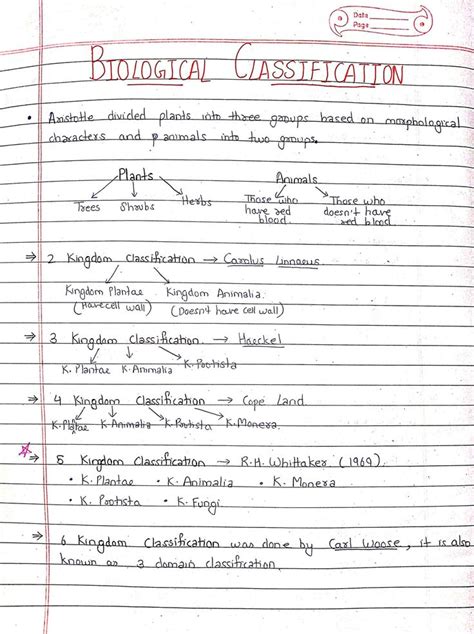 Date
Page
BIOLOGICAL CLASSIFICATION
• Aristotle divided plants into three groups based on morphological
characters and animals into two groups.
Plants Animals
Trees Shrubs Herbs Those who have red blood. Those who doesn't have red blood
⇒ 2 Kingdom Classification → Carolus Linnaeus
Kingdom Plantae Kingdom Animalia.
(Have cell wall) (Doesn't have cell wall)
⇒ 3 Kingdom Classification. → Haeckel
K. Plantae K. Animalia K. Protista
⇒ 4 Kingdom Classification → Cope Land.
K. Plantae K. Animalia K. Protista K. Monera.
☆⇒ 5 Kingdom Classification → R.H. Whittaker (1969).
• K. Plantae • K. Animalia • K. Monera
• K. Protista • K. Fungi
⇒ 6 Kingdom Classification was done by Carl Woose, it is also
known as 3 domain classification.